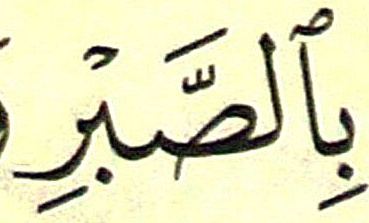 بِٱلصَّبْرِ